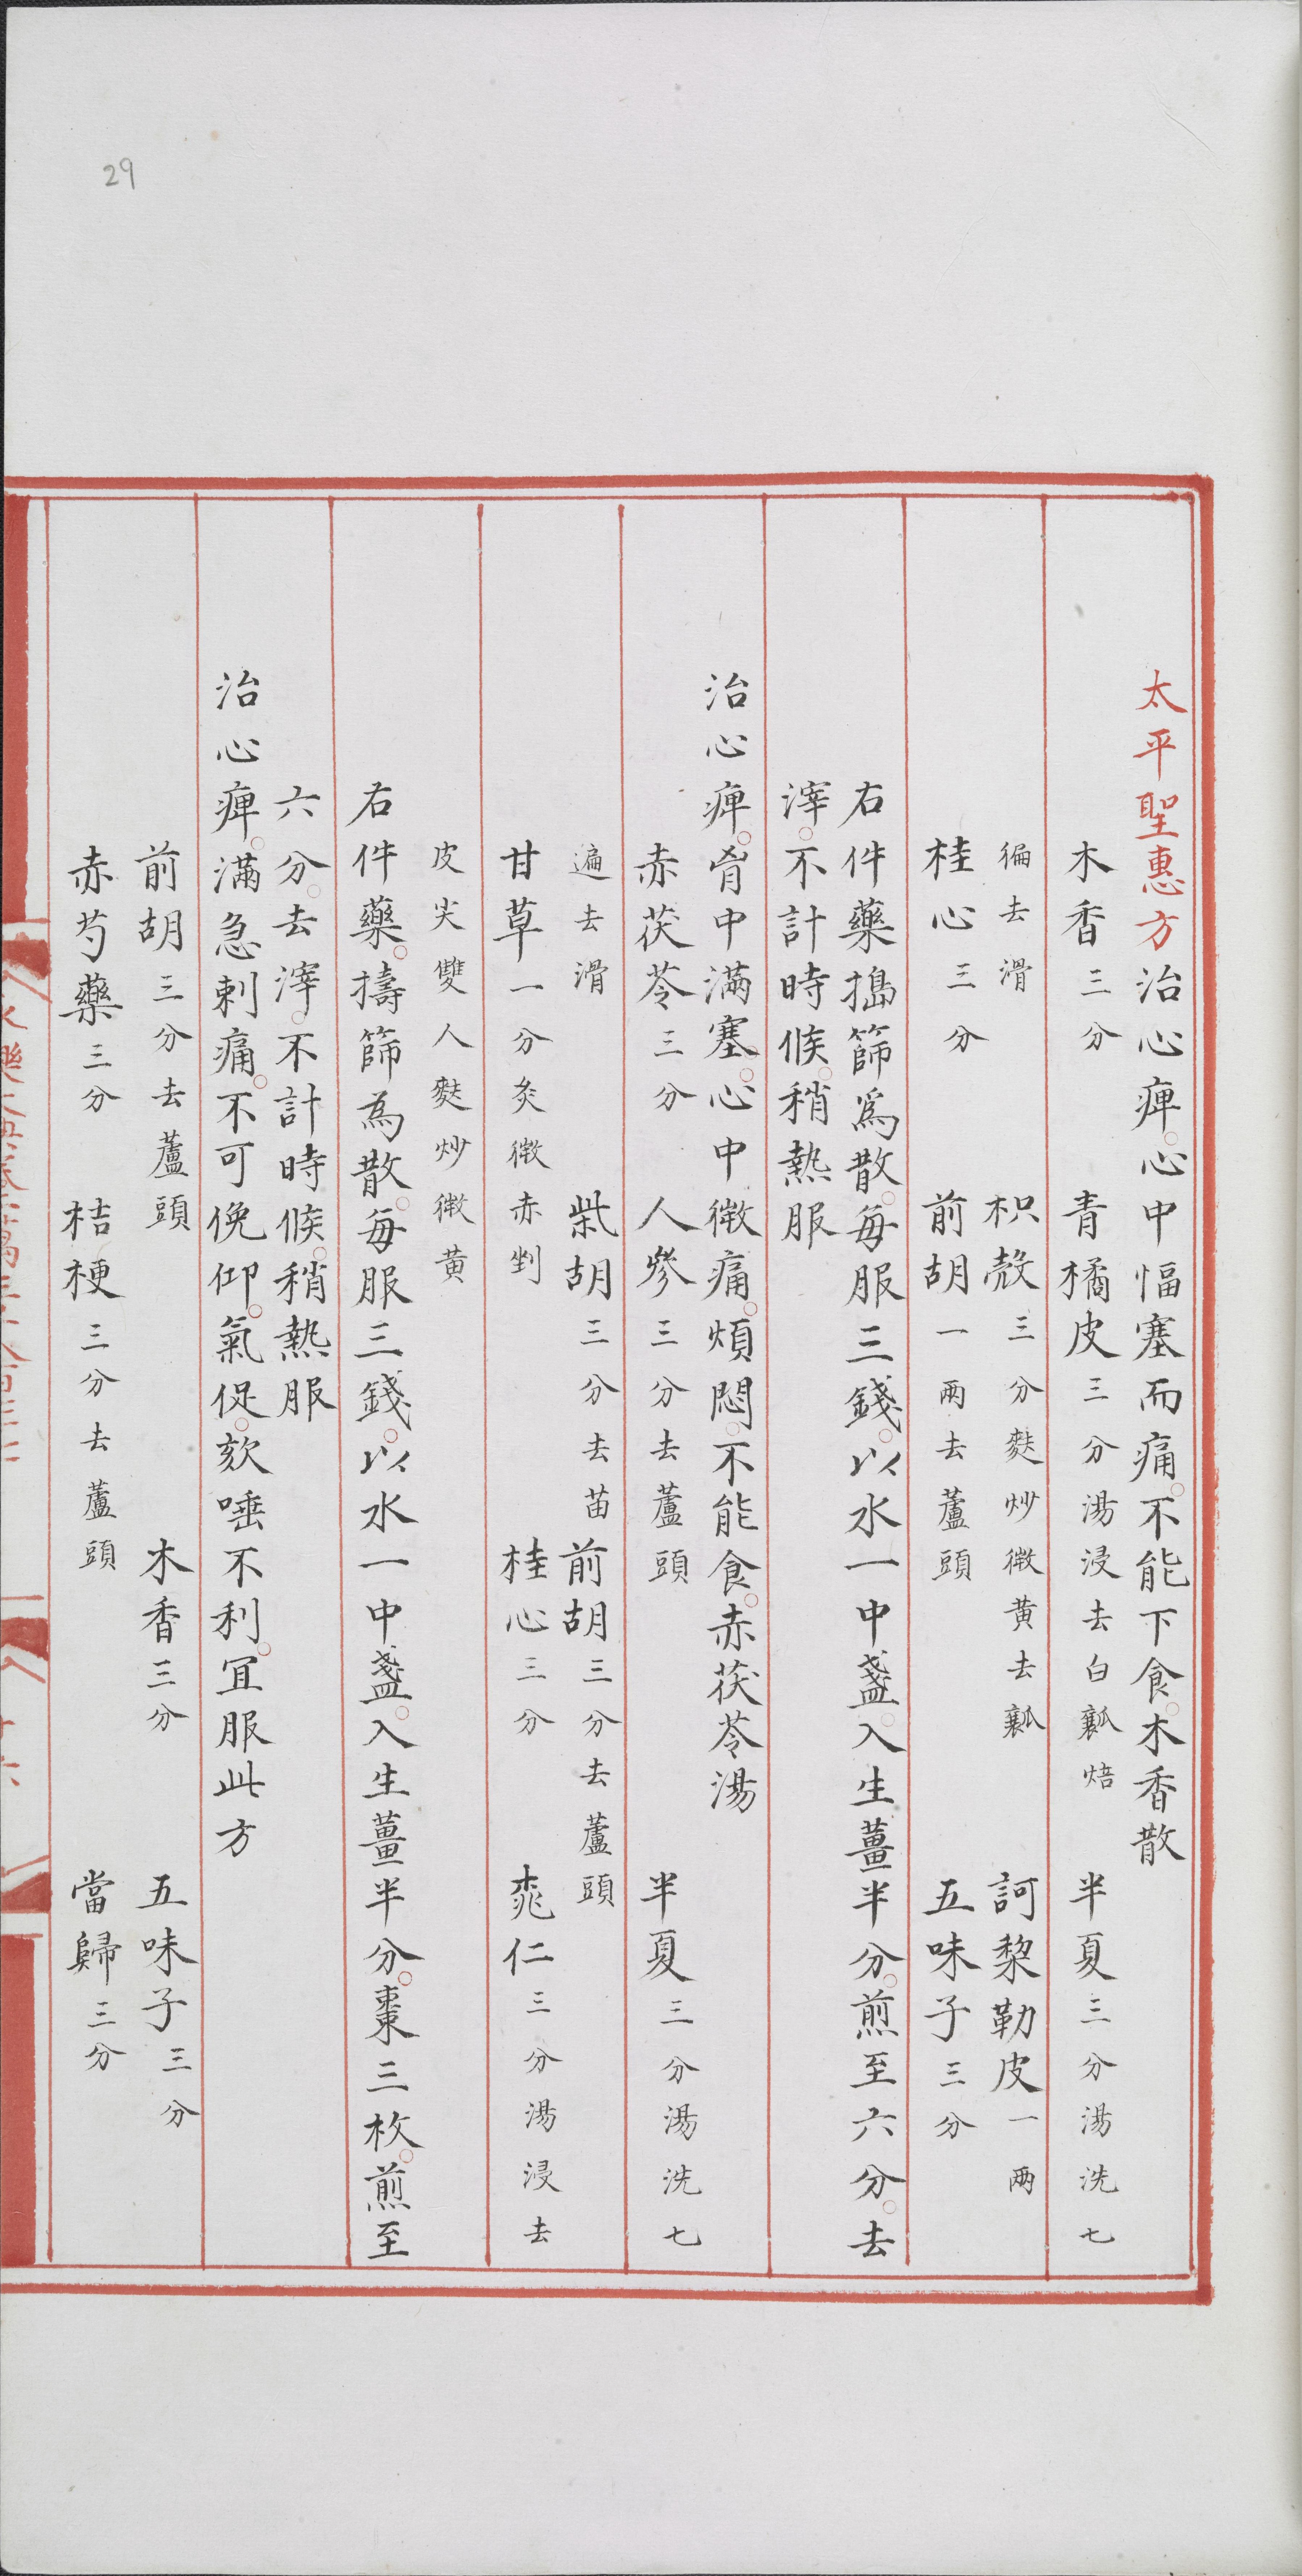 29
太平聖惠方治心痺。心中愊塞而痛。不能下食。木香散
木香三分 青橘皮三分湯浸去白瓤焙 半夏三分湯洗七
徧去滑 枳殼三分麩炒微黃去瓤 訶棃勒皮一兩
桂心三分 前胡一兩去蘆頭 五味子三分
右件藥搗篩爲散。每服三錢。以水一中盞。入生薑半分。煎至六分。去
滓。不計時候。稍熱服
治心痺。胷中滿塞。心中微痛。煩悶。不能食。赤茯苓湯
赤茯苓三分 人參三分去蘆頭 半夏三分湯洗七
遍去滑 柴胡三分去苗 前胡三分去蘆頭
甘草一分炙微赤剉 桂心三分 桃仁三分湯浸去
皮尖雙人麩炒微黃
右件藥。擣篩為散。每服三錢。以水一中盞。入生薑半分。棗三枚。煎至
六分。去滓。不計時候。稍熱服
治心痺。滿急刺痛。不可俛仰。氣促。欬唾不利。宜服此方
前胡三分去蘆頭 木香三分 五味子三分
赤芍藥三分 桔梗三分去蘆頭 當歸三分